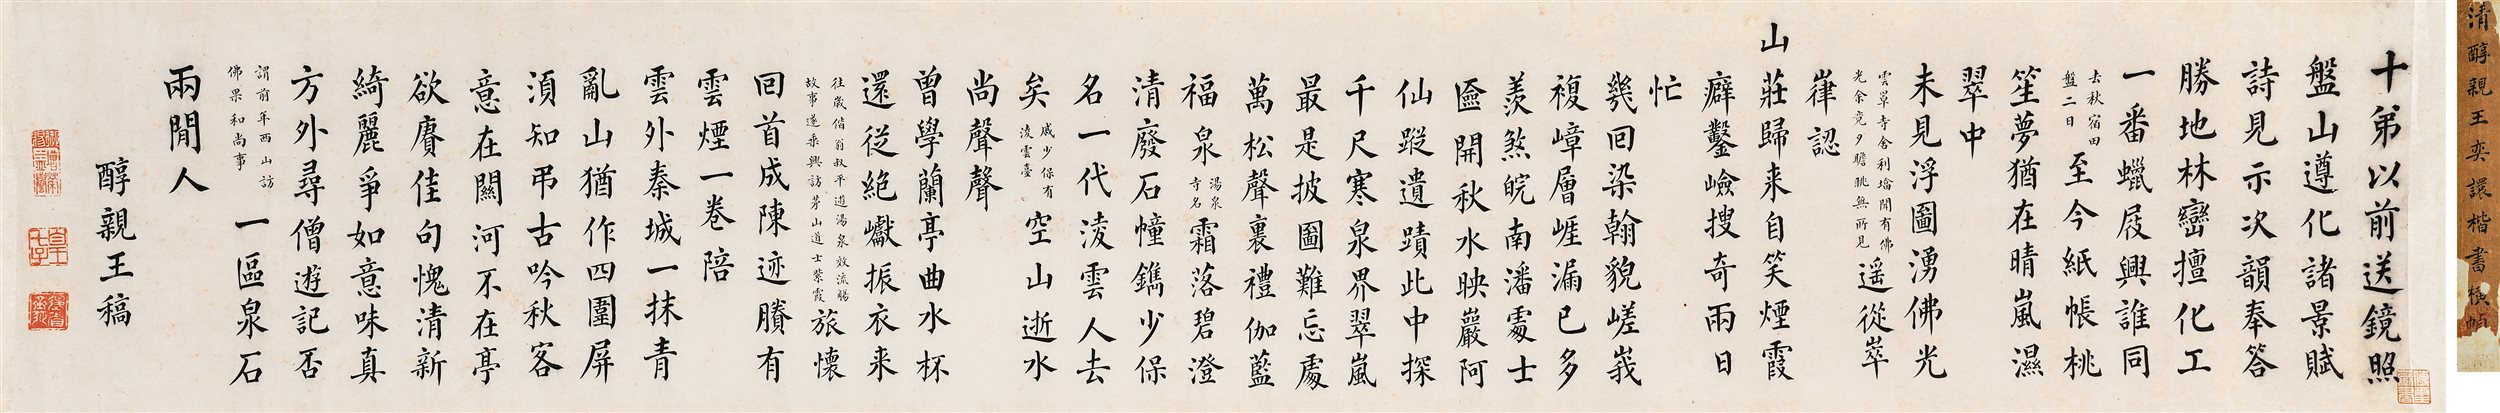 清醇親王奕譞楷書橫帖
十弟以前送鏡照
盤山遵化諸景賦
詩見示次韻奉答
勝地林巒擅化工
一番蠟屐興誰同
去秋宿田
盤二日
至今紙帳桃
笙夢猶在晴嵐濕
翠中
未見浮圖湧佛光
雲罩寺舍利塔閒有佛
光余竟夕瞻眺無所見
遥從崒
嵂認
山莊歸来自笑煙霞
癖鑿嶮搜奇兩日
忙
幾回染翰貌嵯峩
複嶂層崕漏已多
羨煞皖南潘處士
匳開秋水映巖阿
仙蹤遺蹟此中探
千尺寒泉界翠嵐
最是披圖難忘處
萬松聲裏禮伽藍
福泉
湯泉
寺名
霜落碧澄
清廢石幢鐫少保
名一代淩雲人去
矣
戚少保有
淩雲臺
空山逝水
尚聲聲
曽學蘭亭曲水杯
還從絶巘振衣来
往歲偕翁叔平遊湯泉效流觴
故事遂乘興訪茅山道士紫霞
旅懷
回首成陳迹賸有
雲煙一卷陪
雲外秦城一抹青
亂山猶作四圍屏
湏知弔古吟秋客
意在關河不在亭
欲賡佳句愧清新
綺麗爭如意味真
方外尋僧遊記否
謂前年西山訪
佛果和尚事
一區泉石
兩閒人
醇親王稿